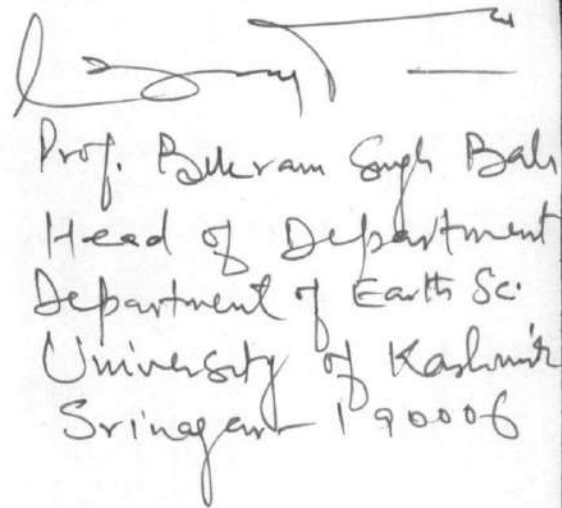 Prof. Bikram Singh Bali
Head of Department
Department of Earth Sc.
University of Kashmir
Srinagar 190006